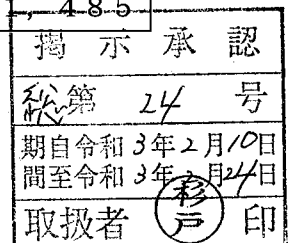 1,485
掲示承認
総第 24 号
期間
自令和 3年2月10日
至令和 3年2月24日
取扱者 杉戸 印